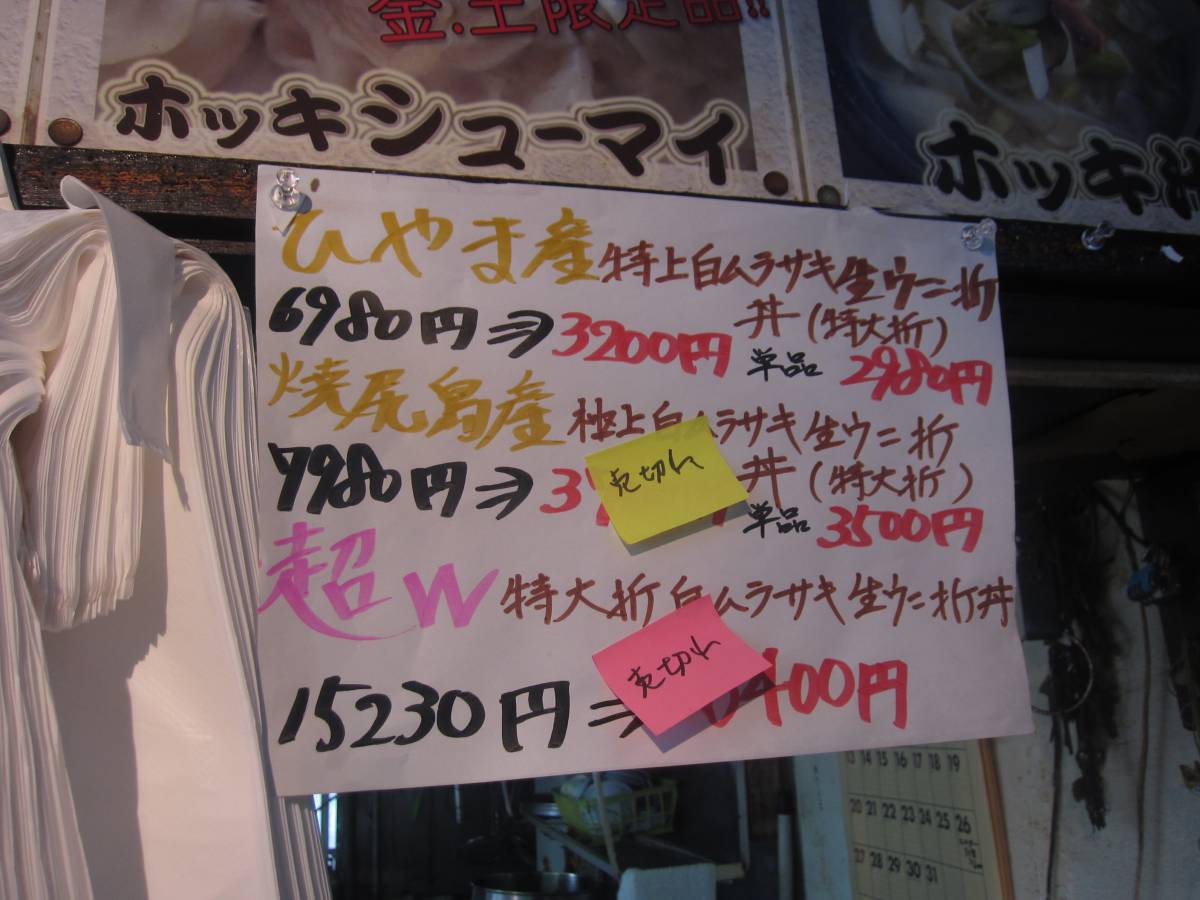 金.土限定品!!
ホッキシューマイ
ホッキ
ひやま産 特上白ムラサキ生ウニ折
6980円⇒3200円 丼(特大折)
単品 2980円
焼尻島産 極上白ムラサキ生ウニ折
7980円⇒3 丼(特大折)
売切れ
単品 3500円
超W 特大折白ムラサキ生ウニ折丼
売切れ
15230円⇒ 400円
13 14 15 16 17 18 19
20 21 22 23 24 25 26
27 28 29 30 31